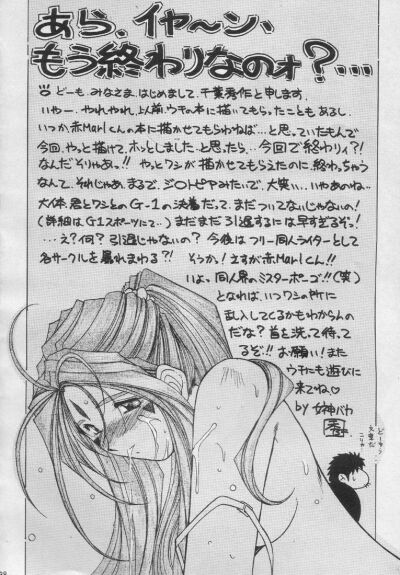 あら、イヤ～ン、
もう終わりなのォ？…
どーも、みなさま、はじめまして、千葉秀作と申します。
いやー、やれやれ、以前、ウチの本に描いてもらったこともあるし、
いつか、赤Marlくんの本に描かせてもらわねば…と思っていたもんで
今回、やっと描けて、ホッとしました…と思ったら、今回で終わりィ？！
なんだそりゃあ。！！やっとワシが描かせてもらえたのに、終わっちゃう
なんて、それじゃあ、まるで、ジ○トピアみたいで、大笑い…いやあのね…
大体、君とワシとのG-1の決着だって、まだついてないじゃないの！
（詳細はG1スポーツにて…）まだまだ引退するには早すぎるぞっ！
…え？何？引退じゃないの？今後はフリー同人ライターとして
名サークルを暴れまわる？！そうか！さすが赤Marlくん！！
いよっ、同人界のミスターポーゴ！！（笑）
となれば、いつワシの所に
乱入してくるかもわからんの
だな？首を洗って待って
るぞ！！お願い！また
ウチにも遊びに
来てね♡
by 女神バカ
秀